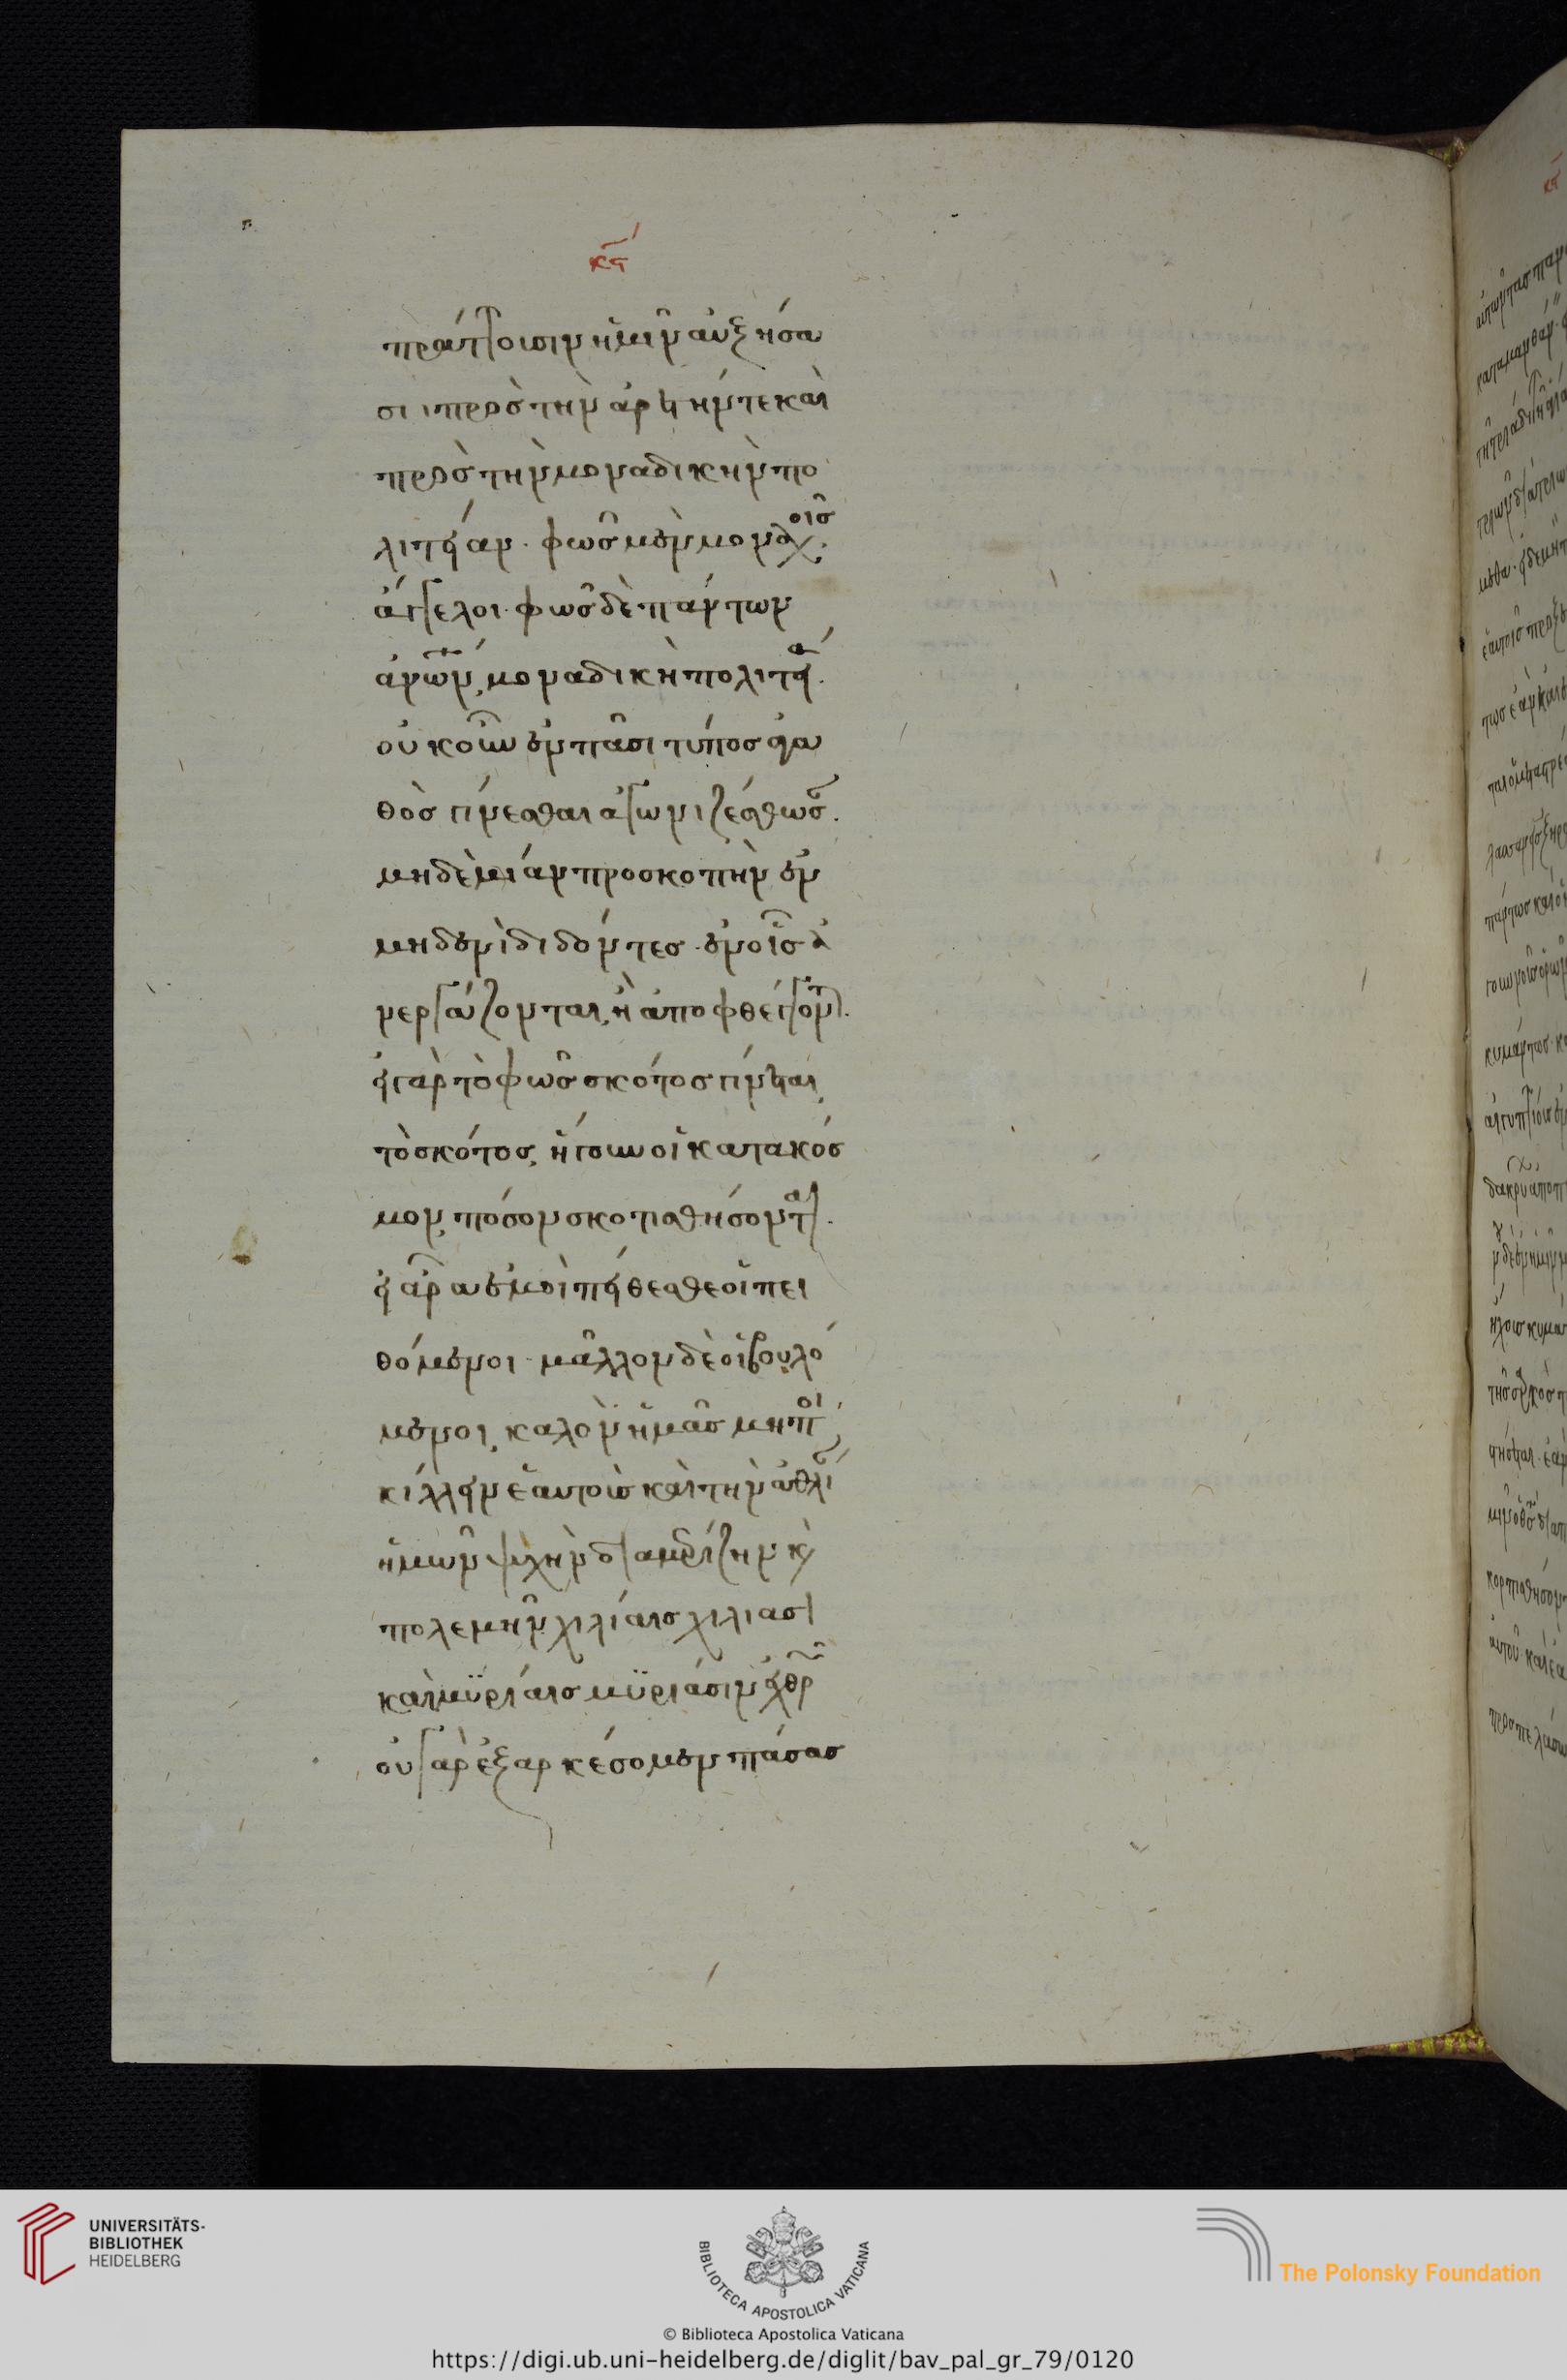 κϛ
πράττουσιν ἡμῖν αὐξήσα
σι πρὸς τὴν ἀρετήν τε καὶ
πρὸς τὴν μοναδικὴν πο
λιτείαν· φῶς μὲν μοναχοῖς
ἄγγελοι· φῶς δὲ πάντων
ἀνῶν, μοναδικὴ πολιτεία.
οὐκοῦν ἐν πᾶσι τύπος ἀγα
θὸς γίνεσθαι ἀγωνιζέσθωσ.
μηδὲ μίαν προσκοπὴν ἐν
μηδενὶ διδόντες· ἐν οἷς ἀ
νεργάζονται, ἢ ἀποφθέγγονται.
εἰ γὰρ τὸ φῶς σκότος γίνεται,
τὸ σκότος, ἤγουν οἱ κατα κόσ
μον, πόσον σκοτισθήσονται.
εἰ ἄρα ἐμοὶ πείθεσθε οἱ πει
θόμενοι· μᾶλλον δὲ οἱ βουλό
μενοι, καλὸν ἡμᾶς μὴ ποι
κίλλειν ἑαυτοὺς καὶ τὴν ἀθλίαν
ἡμῶν ψυχὴν διαμερίζην κὶ
πολεμῆν χιλίαις χιλιάσι
καὶ μϋρίαις μϋριάσιν ἐχθρῶν
οὐ γὰρ ἐξαρκέσομεν πάσας
UNIVERSITÄTS-
BIBLIOTHEK
HEIDELBERG
BIBLIOTECA APOSTOLICA VATICANA
The Polonsky Foundation
© Biblioteca Apostolica Vaticana
https://digi.ub.uni-heidelberg.de/diglit/bav_pal_gr_79/0120